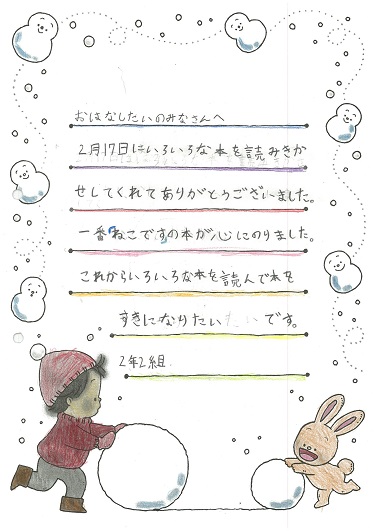 おはなしたいのみなさんへ
2月17日にいろいろな本を読みきか
せしてくれてありがとうございました。
一番ねこですの本が心にのりました。
これからいろいろな本を読んで本を
すきになりたいです。
2年2組